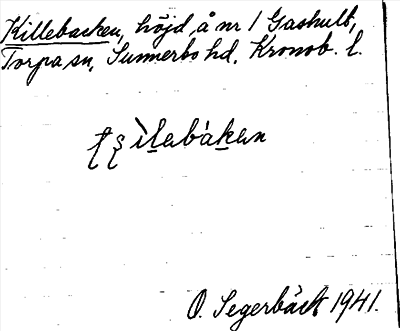 Killebacken, höjd, å nr 1 Gashult,
Torpa sn, Sunnerbo hd, Kronob. l.
tʂìlebàken
O. Segerbäck 1941.